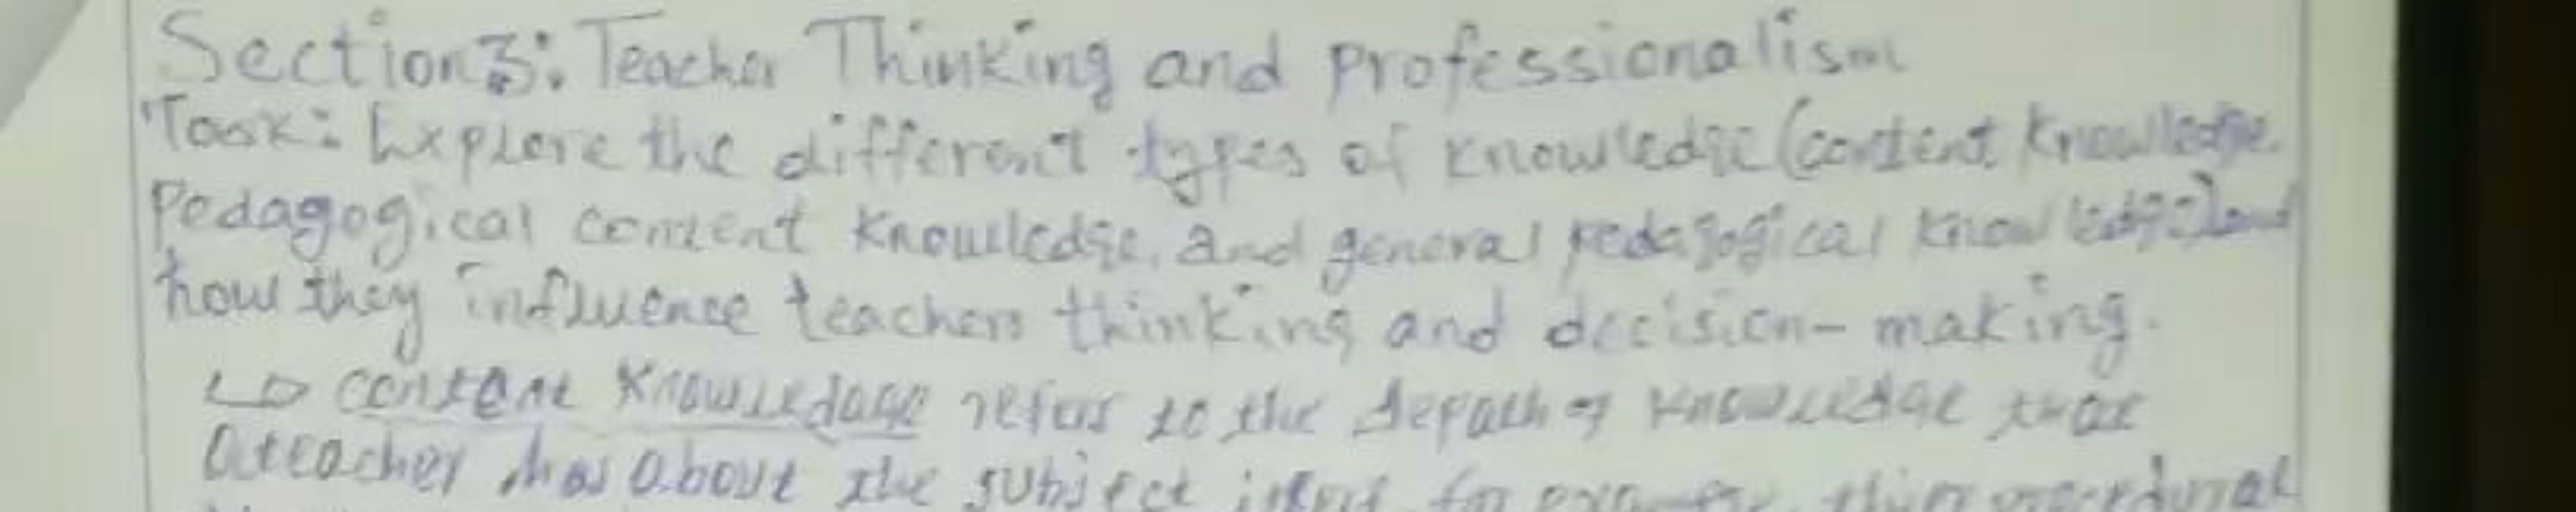 Section 3: Teacher Thinking and professionalism
Task: Explore the different types of knowledge (content knowledge
Pedagogical content knowledge, and general pedagogical knowledge) and
how they influence teachers thinking and decision-making.
↳ content knowledge refers to the depath of knowledge that
a teacher has about the subject itself, for example, procedural